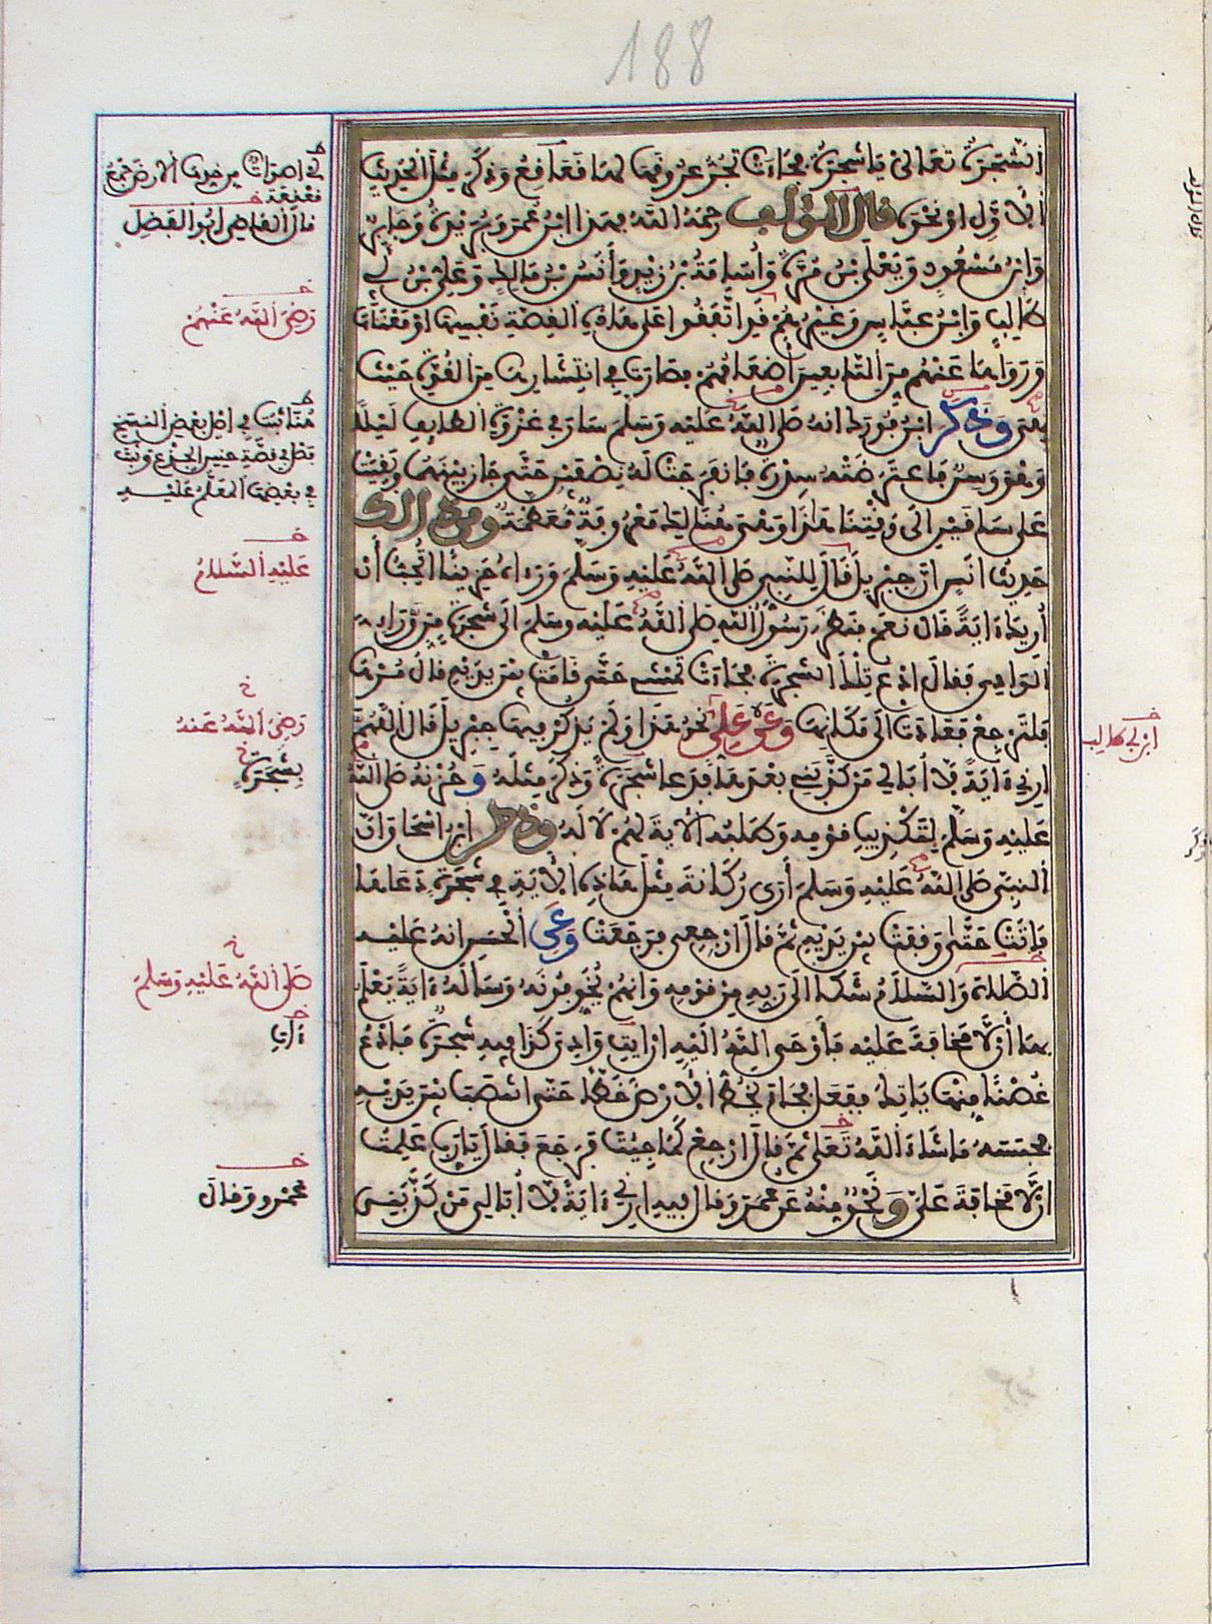 188
الشجرة تعالي يا شجرة فجاءت تجر عروقها لها قعاقع وذكر مثل الحديث
الأول أو نحوه قال المؤلف رحمه الله فهذا ابن عمر وبريدة وجابر
وابن مسعود ويعلى بن مرة وأسامة بن زيد وأنس بن مالك وعلي بن أبي
طالب وابن عباس وغيرهم قد اتفقوا على هذه القصة نفسها أو معناها
ورواها عنهم من التابعين أضعافهم فصارت في انتشارها من القوة حيث
هي وذكر ابن فورك أنه صلى الله عليه وسلم سار في غزوة الطائف ليلا
وهو وسن فاعترضته سدرة فانفرجت له نصفين حتى جاز بينهما وبقيت
على ساقين إلى وقتنا هذا وهي هناك معروفة معظمة ومن ذلك
حديث أنس أن جبريل قال للنبي صلى الله عليه وسلم ورءاه حزينا أتحب أن
أريك ءاية قال نعم فنظر رسول الله صلى الله عليه وسلم إلى شجرة من وراء
الوادي فقال ادع تلك الشجرة فجاءت تمشي حتى قامت بين يديه قال مرها
فلترجع فعادت إلى مكانها وعن علي نحو هذا ولم يذكر فيها جبريل قال اللهم
أرني ءاية لا أبالي من كذبني بعدها فدعا شجرة وذكر مثله وحزنه صلى الله
عليه وسلم لتكذيب قومه وطلبه الآية لهم لا له وذكر ابن إسحاق أن
النبي صلى الله عليه وسلم أرى ركانة مثل هذه الآية في شجرة دعاها
فأتت حتى وقفت بين يديه ثم قال ارجعي فرجعت وعن الحسن أنه عليه
الصلاة والسلام شكا إلى ربه من قومه وأنهم يخوفونه وسأله ءاية يعلم
بها ألا مخافة عليه فأوحى الله إليه أن ايت وادي كذا فيه شجرة فادع
غصنا منها ياتك ففعل فجاء يخط الأرض خطا حتى انتصب بين يديه
فحبسه ما شاء الله تعلى ثم قال ارجع كما جئت فرجع فقال يا رب علمت
أن لا مخافة علي ونحو منه عن عمر وقال فيه أرني ءاية لا أبالي من كذبني
قال القاضي أبو الفضل
رضي الله عنهم
عليه السلام
رضي الله عنه
بشجرة
صلى الله عليه وسلم
ابن أبي طالب